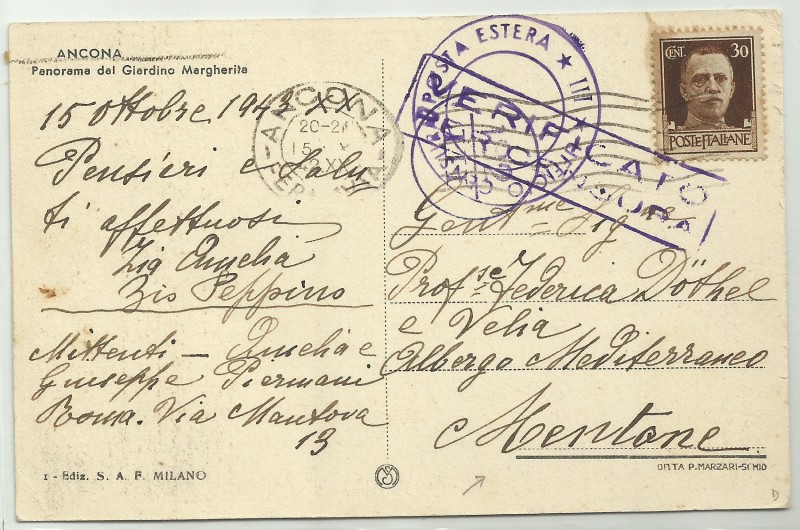 ANCONA
Panorama dal Giardino Margherita
15 Ottobre 1942 XX
Pensieri e Salu
ti affettuosi
Zia Amelia
Zio Peppino
Mittenti — Amelia e
Giuseppe Piermani
Roma. Via Mantova
13
1 - Ediz. S. A. F. MILANO
ANCONA
20-21
15
POSTA ESTERA
VERIFICATO
CENSURA
CENT. 30
POSTE ITALIANE
Gent.me Sig.ne
Prof.se Federica Döthel
e Velia
Albergo Mediterraneo
Mentone
DITTA P. MARZARI-SCHIO